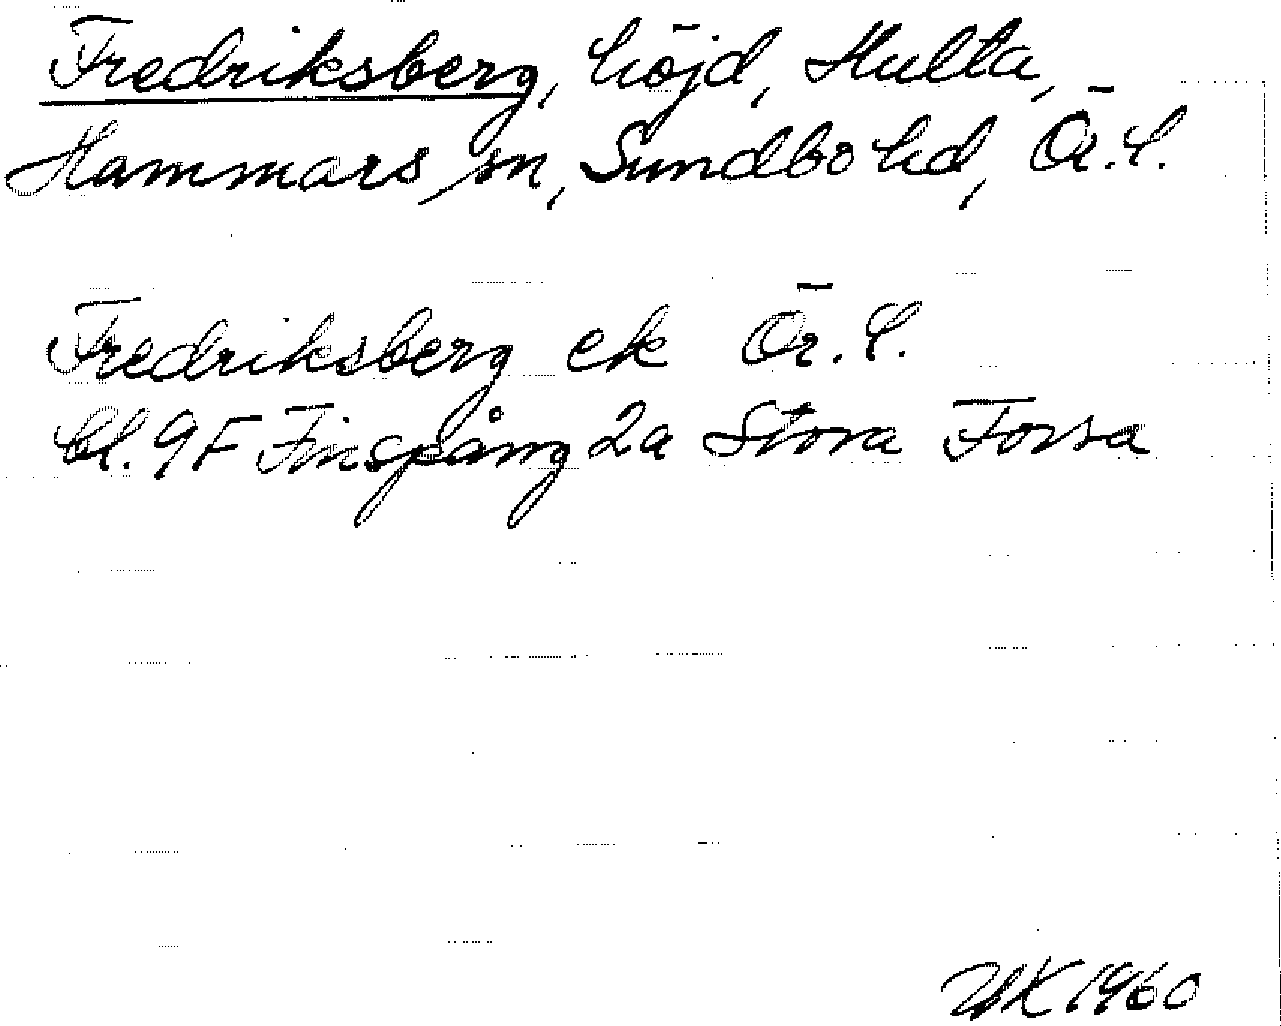 Fredriksberg, höjd, Hulta,
Hammars sn, Sundbo hd, Ör. l.
Fredriksberg ek Ör. l.
bl. 9F Finspång 2a Stora Forsa
1960